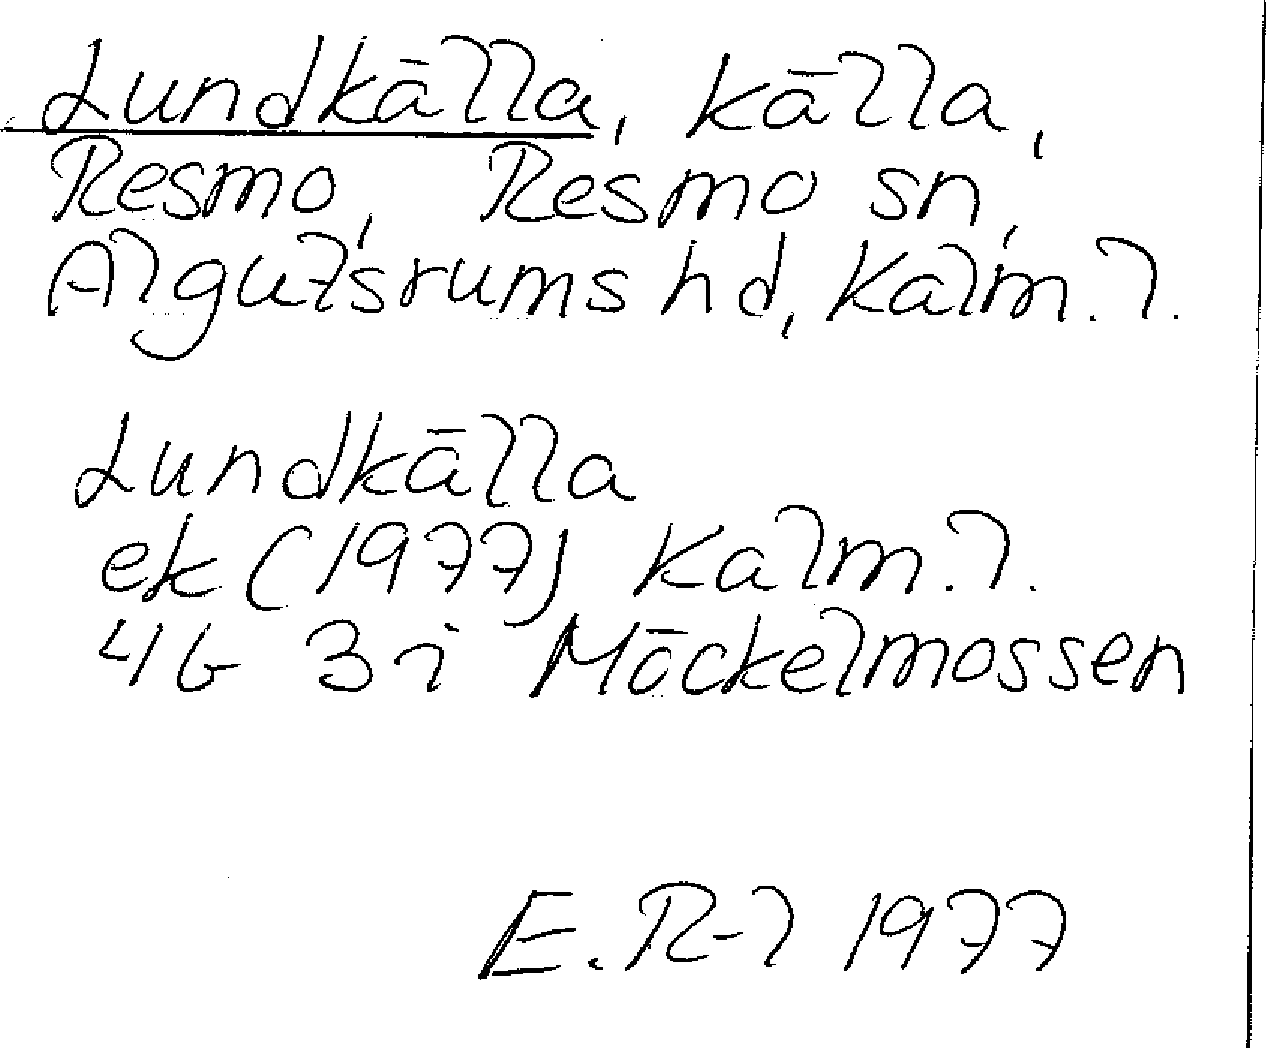 Lundkälla, källa,
Resmo, Resmo sn,
Algutsrums hd, Kalm. l.
Lundkälla
ek (1977) Kalm. l.
4G 3i Möckelmossen
E. R-l 1977